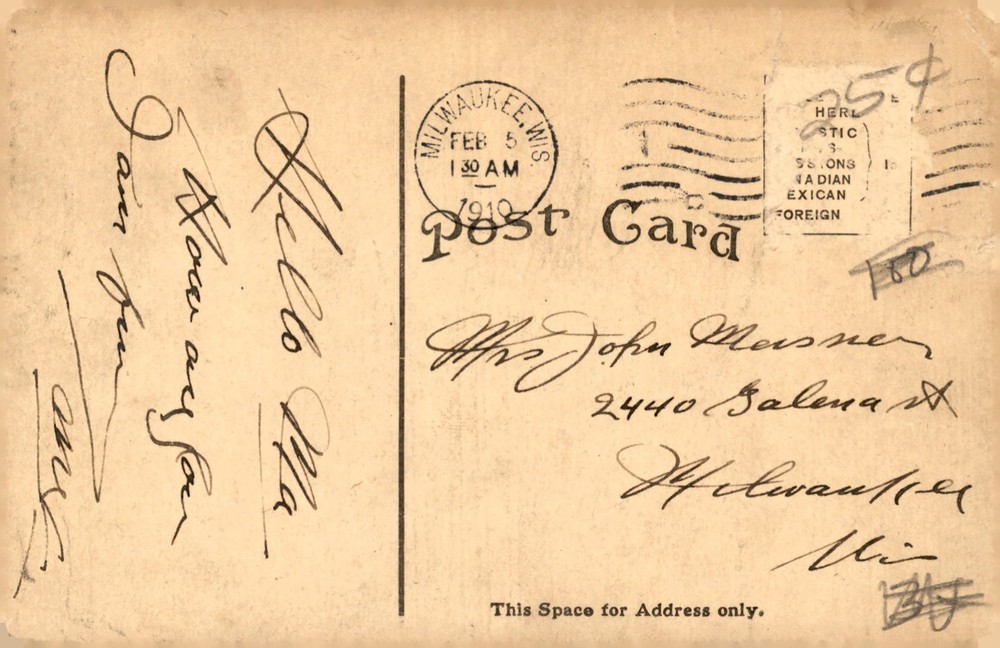 Hello Ma
How are you
I am fine
MILWAUKEE, WIS
FEB 5
1 30 AM
1910
25¢
HERE
STIC
S-
SSIONS
NADIAN
EXICAN
FOREIGN
Post Card
100
Mrs John Meisner
2440 Galena St
Milwaukee
Wis
This Space for Address only.